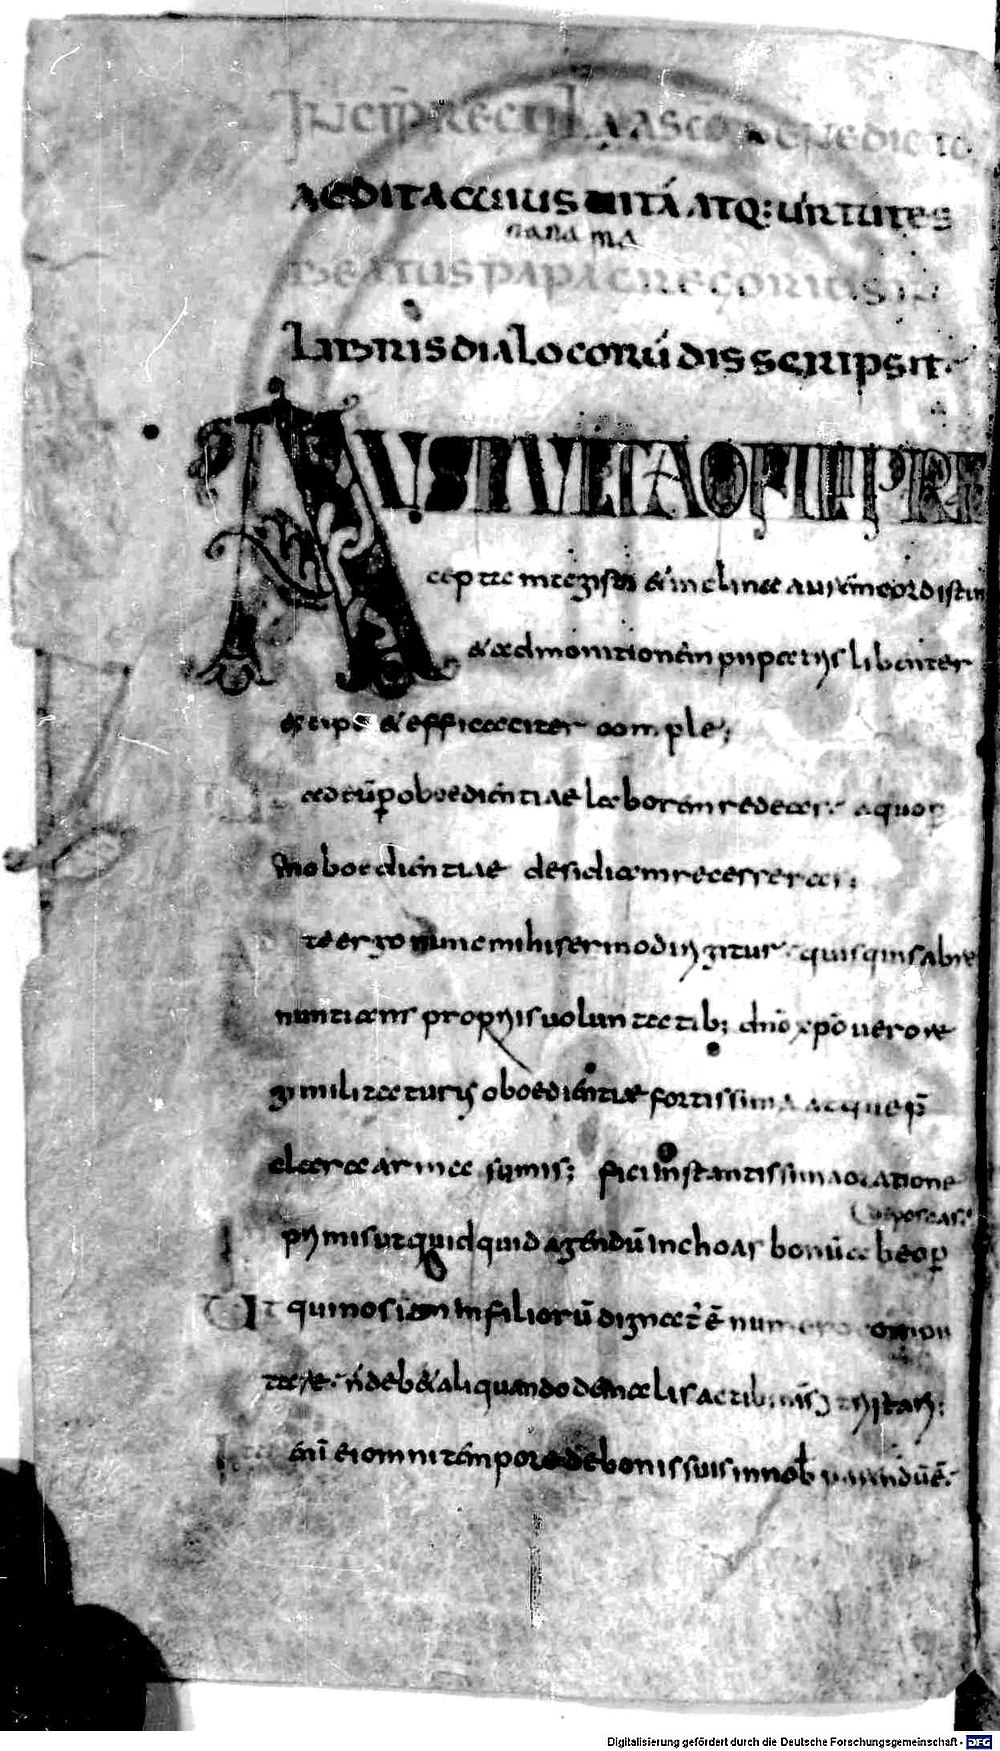 INCIP REGULA A SCO BENEDICTO
AEDITA CUIUS UITA ATQ: UIRTUTES
BEATUS PAPA GREGORIUS IN
LIBRIS DIALOGORŪ DISSCRIPSIT.
AUSCULTA O FILI PRE
cepta magistri & inclina aurem cordis tui
& admonitionem pii patris libenter
excipe & efficaciter comple;
ad eū p̄ oboedientiae laborem redeas a quo p̄
inoboedientiae desidiam recesseras;
te ergo nunc mihi sermo dirigitur quisquis abre
nuntians propriis uoluntatib; dn̄o xp̄o uero re
gi militaturus oboedientiae fortissima atque p̄
clara arma sumis; sic instantissima oratione
deposcas
primis ut quidquid agendū inchoas bonū ab eo p̄
Ut qui nos iam in filiorū dignat' ē numero compu
tare n̄ deb& aliquando de malis actib; nr̄is
enī ei omni tempore de bonis suis in nob
Digitalisierung gefördert durch die Deutsche Forschungsgemeinschaft - DFG